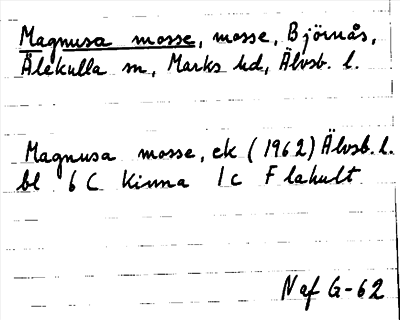 Magnusa mosse, mosse, Björnås,
Älekulla sn, Marks hd, Älvsb. l.
Magnusa mosse, ek (1962) Älvsb. l.
bl 6 C Kinna 1 c Flakult
Naf G-62